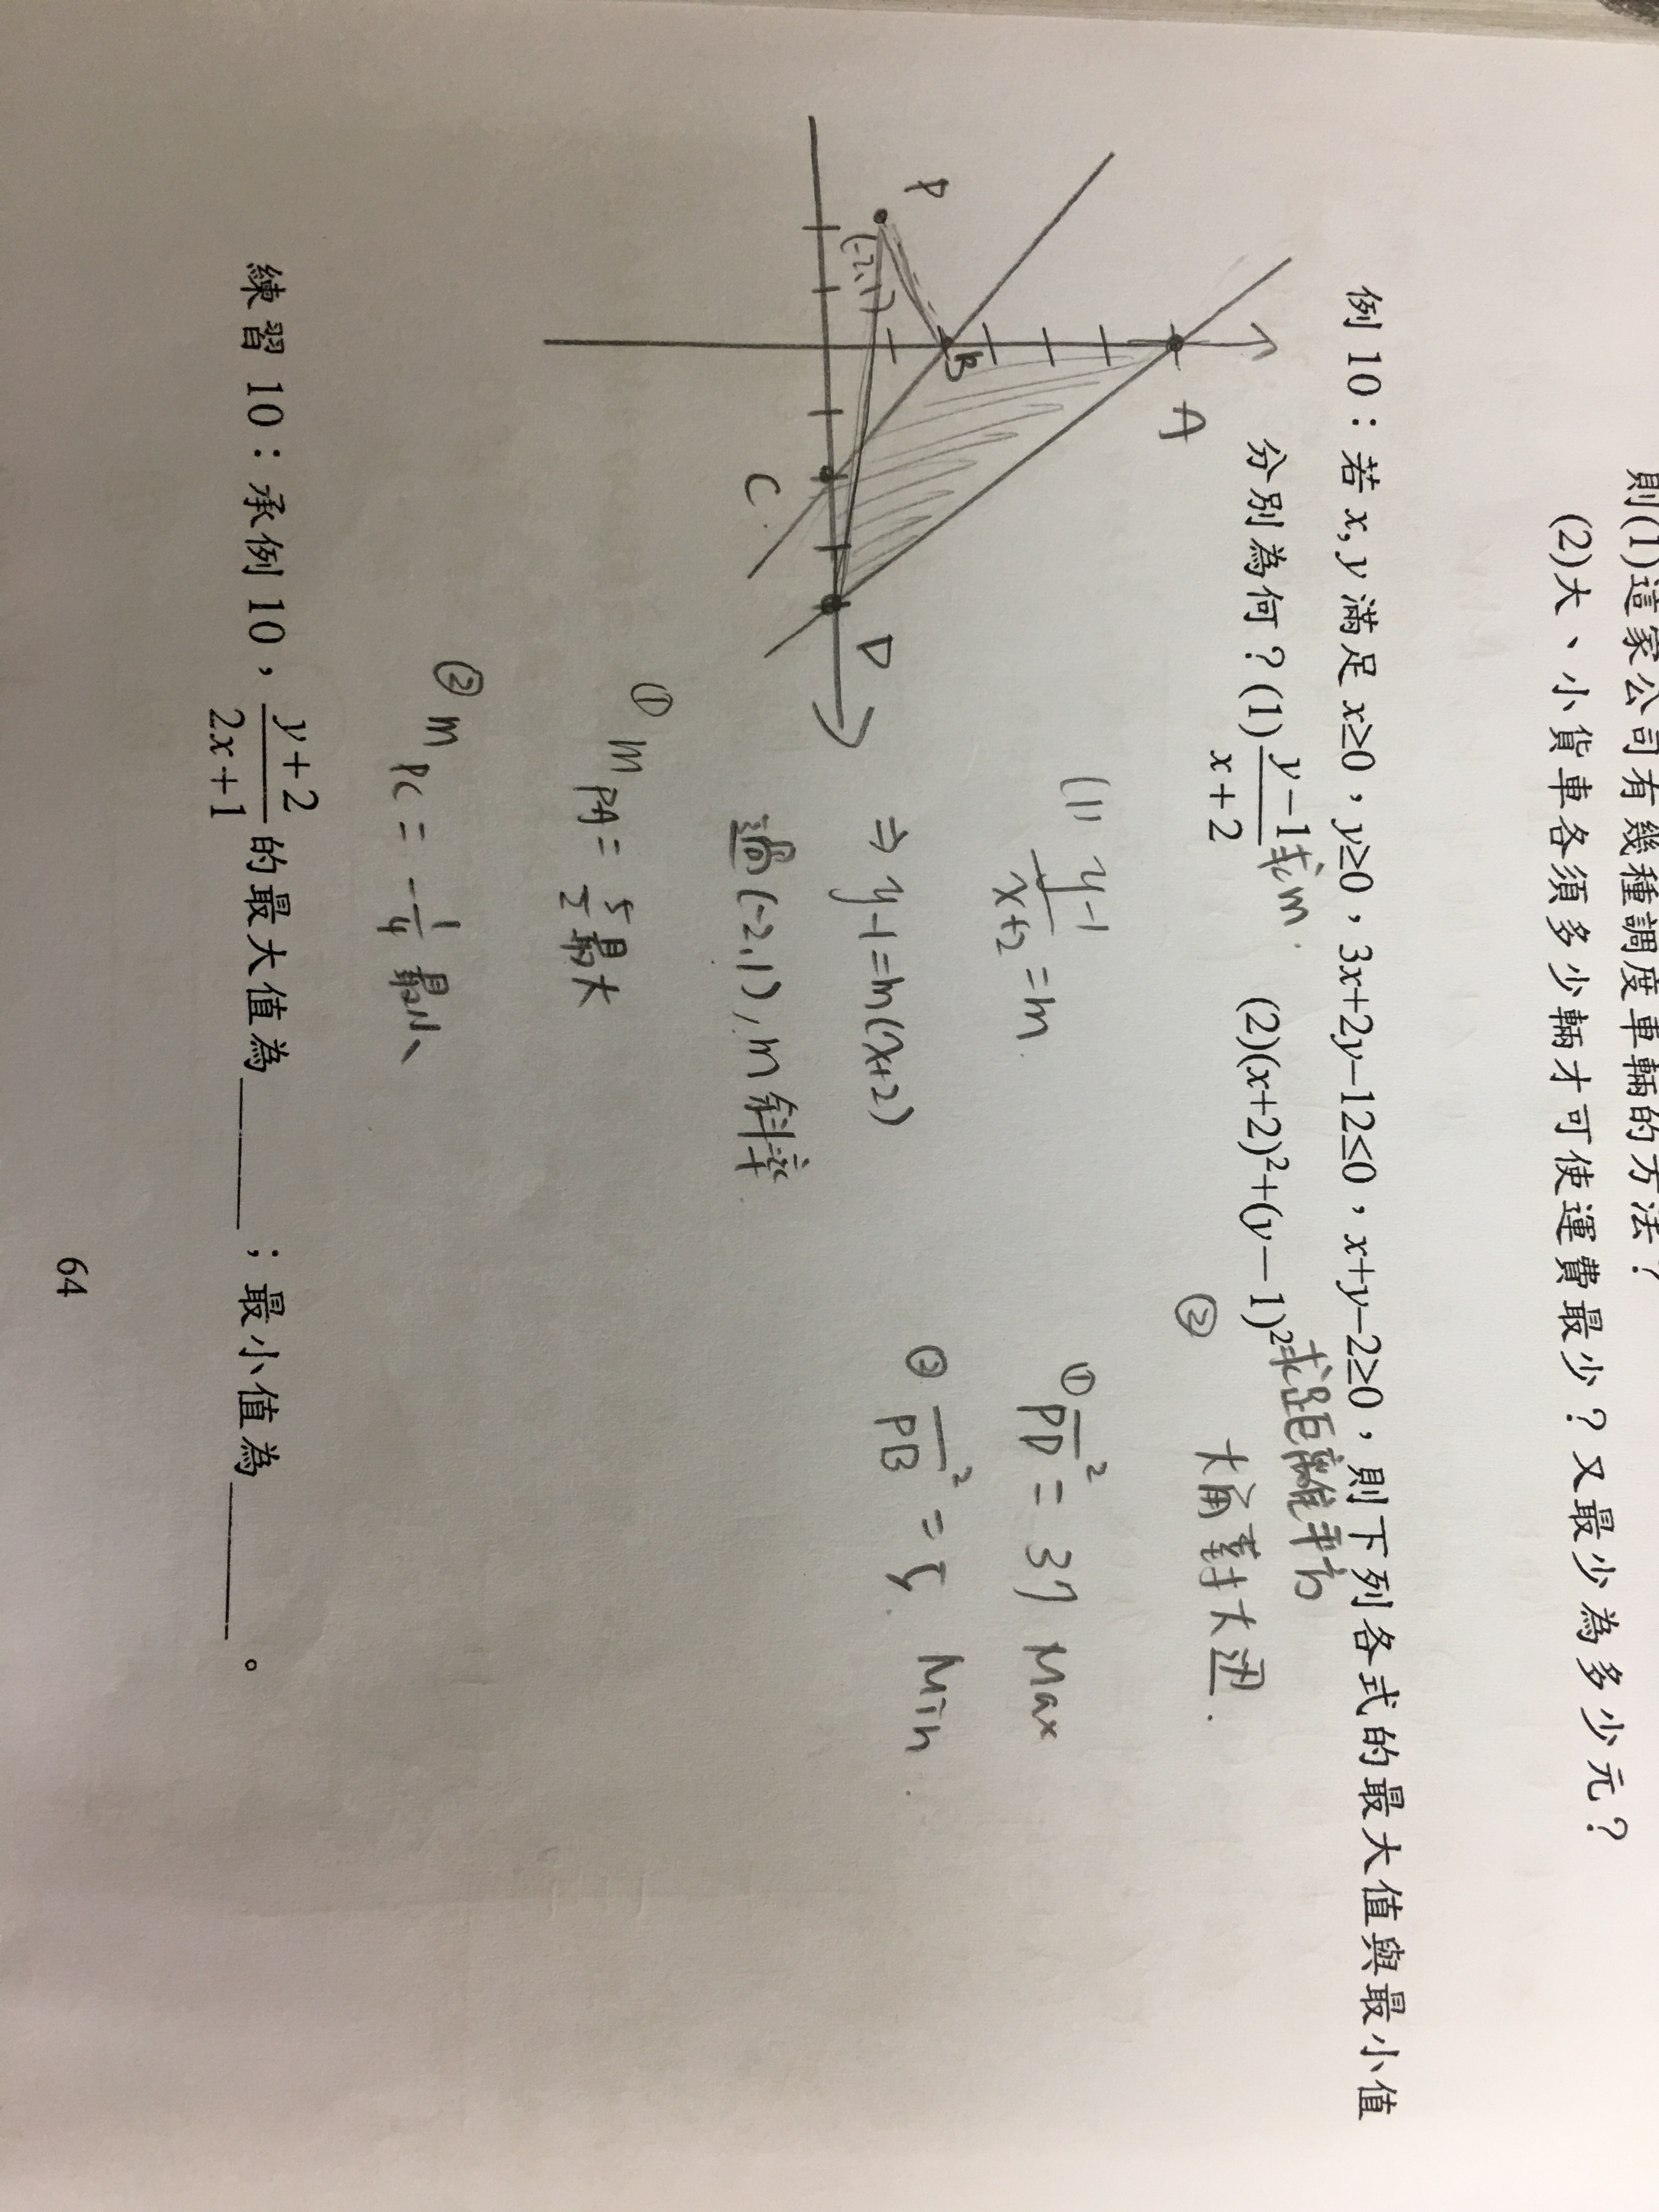 則(1)這家公司有幾種調度車輛的方法?
(2)大、小貨車各須多少輛才可使運費最少?又最少為多少元?
例 10:若 x, y 滿足 x≥0,y≥0,3x+2y−12≤0,x+y−2≥0,則下列各式的最大值與最小值
分別為何?(1) (y−1)/(x+2) 求m. (2)(x+2)²+(y−1)² 求距離平方
(1) (y-1)/(x+2) = m.
⇒ y-1=m(x+2)
過(-2,1), m斜率
① mPA = 5/2 最大
② mPC = -1/4 最小
② 大角對大邊.
① PD² = 37 Max
② PB² = 5. Min.
A
B
C
D
P
(-2,1)
練習 10:承例 10,(y+2)/(2x+1) 的最大值為______;最小值為______。
64